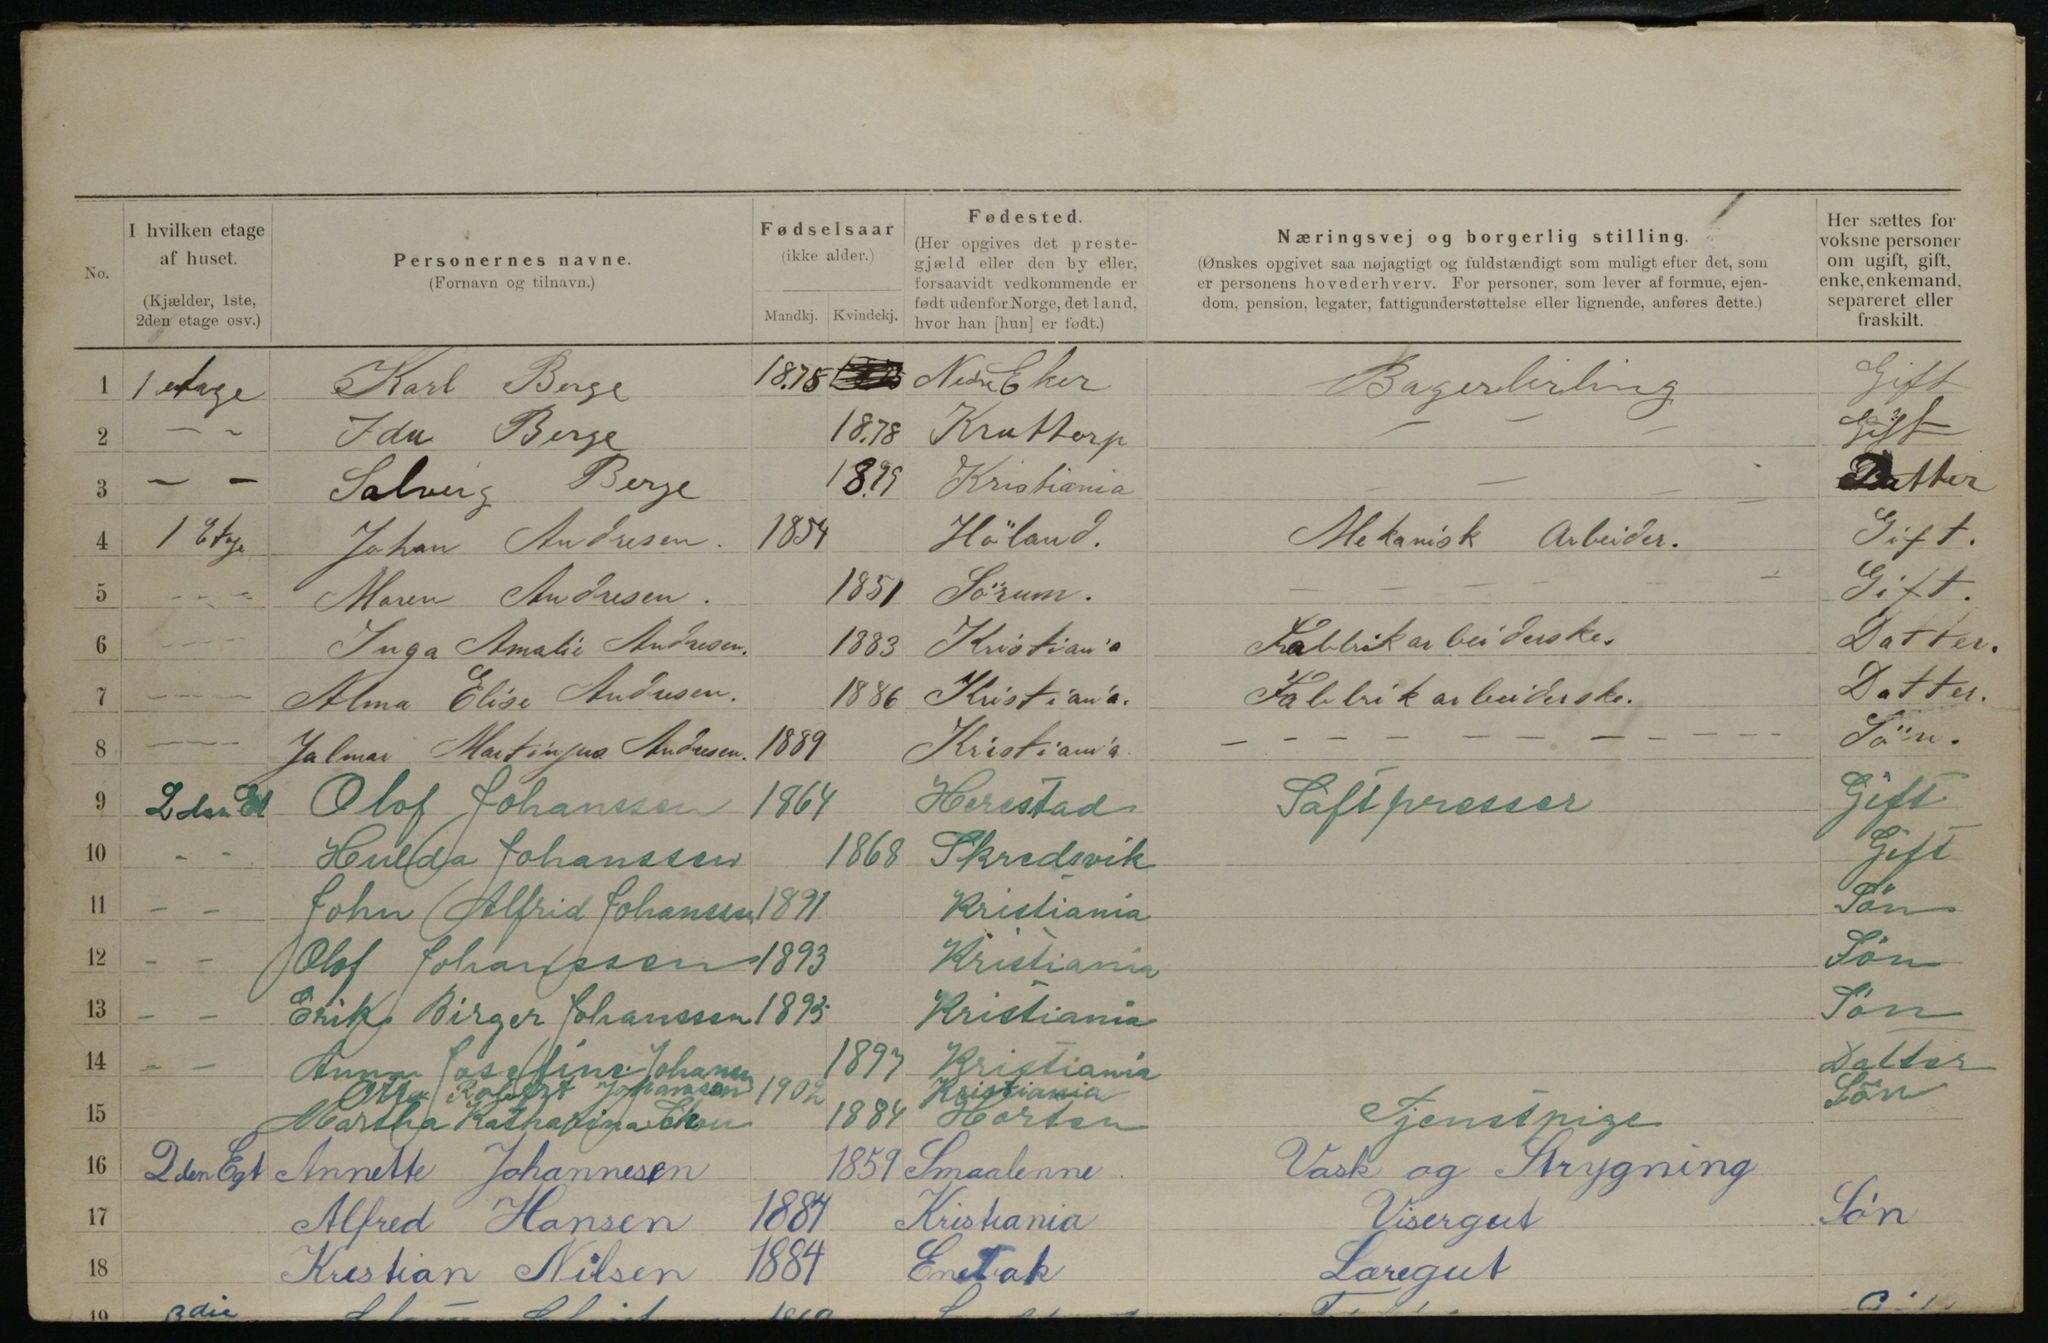 No.
I hvilken etage af huset. (Kjælder, 1ste, 2den etage osv.)
Personernes navne. (Fornavn og tilnavn.)
Fødselsaar (ikke alder.)
Mandkj. Kvindekj.
Fødested. (Her opgives det prestegjæld eller den by eller, forsaavidt vedkommende er født udenfor Norge, det land, hvor han [hun] er født.)
Næringsvej og borgerlig stilling. (Ønskes opgivet saa nøjagtigt og fuldstændigt som muligt efter det, som er personens hovederhverv. For personer, som lever af formue, ejendom, pension, legater, fattigunderstøttelse eller lignende, anføres dette.)
Her sættes for voksne personer om ugift, gift, enke, enkemand, separeret eller fraskilt.
1 1 etage Karl Berge 1875 Nedre Eker Gift
2 - - Ida Berge 1878 - - - Gift
3 - - Solveig Berge 1899 Kristiania - - - Datter
4 1 Etge Johan Andresen. 1854 Höland. Mekanisk Arbeider. Gift.
5 - - - Maren Andresen. 1851 Sörum. - - - Gift.
6 - - - Inga Amalie Andresen. 1883 Kristiania Fabbrikarbeiderske. Datter.
7 - - - Alma Elise Andresen. 1886 Kristiania. Fabbrikarbeiderske. Datter.
8 - - - Jalmar Martinjus Andresen. 1889 Kristiania - - - Sön.
9 2den Et Olof Johanssen 1864 Herestad Saftpresser Gift
10 - - Hulda Johanssen 1868 Skredsvik Gift
11 - - John Alfrid Johanssen 1891 Kristiania Søn
12 - - Olof Johanssen 1893 Kristiania Søn
13 - - Erik Birger Johanssen 1895 Kristiania Søn
14 - - Anna Josefine Johans 1897 Kristiania Datter
Otto Robert Johansen 1902 Kristiania Søn
15 Martha Katharina 1884 Horten Tjenstpige
16 2den Egt Annette Johannesen 1859 Smaalenne Vask og Strygning
17 Alfred Hansen 1884 Kristiania Visergut Søn
18 Krestian Nilsen 1884 Enebak Læregut
19 3die